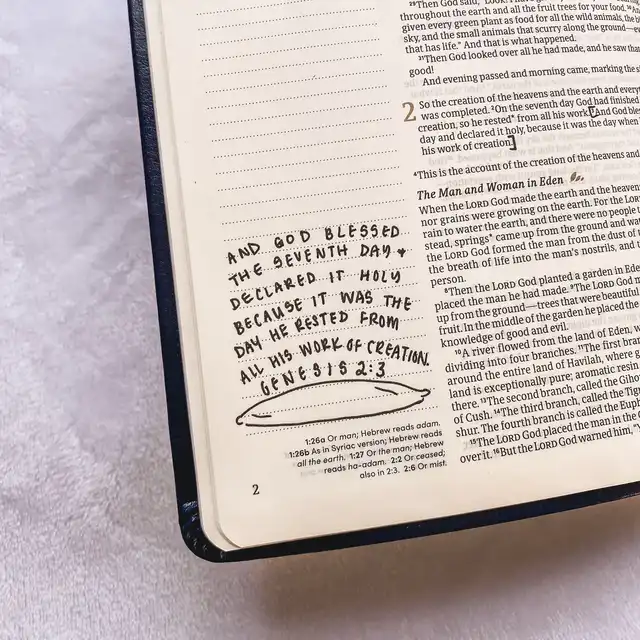 AND GOD BLESSED
THE SEVENTH DAY +
DECLARED IT HOLY
BECAUSE IT WAS THE
DAY HE RESTED FROM
ALL HIS WORK OF CREATION.
GENESIS 2:3
1:26a Or man; Hebrew reads adam.
1:26b As in Syriac version; Hebrew reads
all the earth. 1:27 Or the man; Hebrew
reads ha-adam. 2:2 Or ceased;
also in 2:3. 2:6 Or mist.
2
throughout the earth and all the fruit trees for your food.
given every green plant as food for all the wild animals, the
sky, and the small animals that scurry along the ground—
that has life." And that is what happened.
31Then God looked over all he had made, and he saw
good!
And evening passed and morning came, marking the
2 So the creation of the heavens and the earth and
was completed. 2On the seventh day God had finished
creation, so he rested* from all his work. And God
day and declared it holy, because it was the day when
his work of creation.
4This is the account of the creation of the heavens and
The Man and Woman in Eden
When the LORD God made the earth and the
nor grains were growing on the earth. For the
rain to water the earth, and there were no people
stead, springs* came up from the ground and
the LORD God formed the man from the dust of
the breath of life into the man's nostrils, and
person.
8Then the LORD God planted a garden in
placed the man he had made. 9The LORD God
up from the ground—trees that were beautiful
fruit. In the middle of the garden he placed the
knowledge of good and evil.
10A river flowed from the land of Eden,
dividing into four branches. 11The first
around the entire land of Havilah, where
land is exceptionally pure; aromatic resin
there. 13The second branch, called the
of Cush. 14The third branch, called the
shur. The fourth branch is called the
15The LORD God placed the man in the
over it. 16But the LORD God warned him,